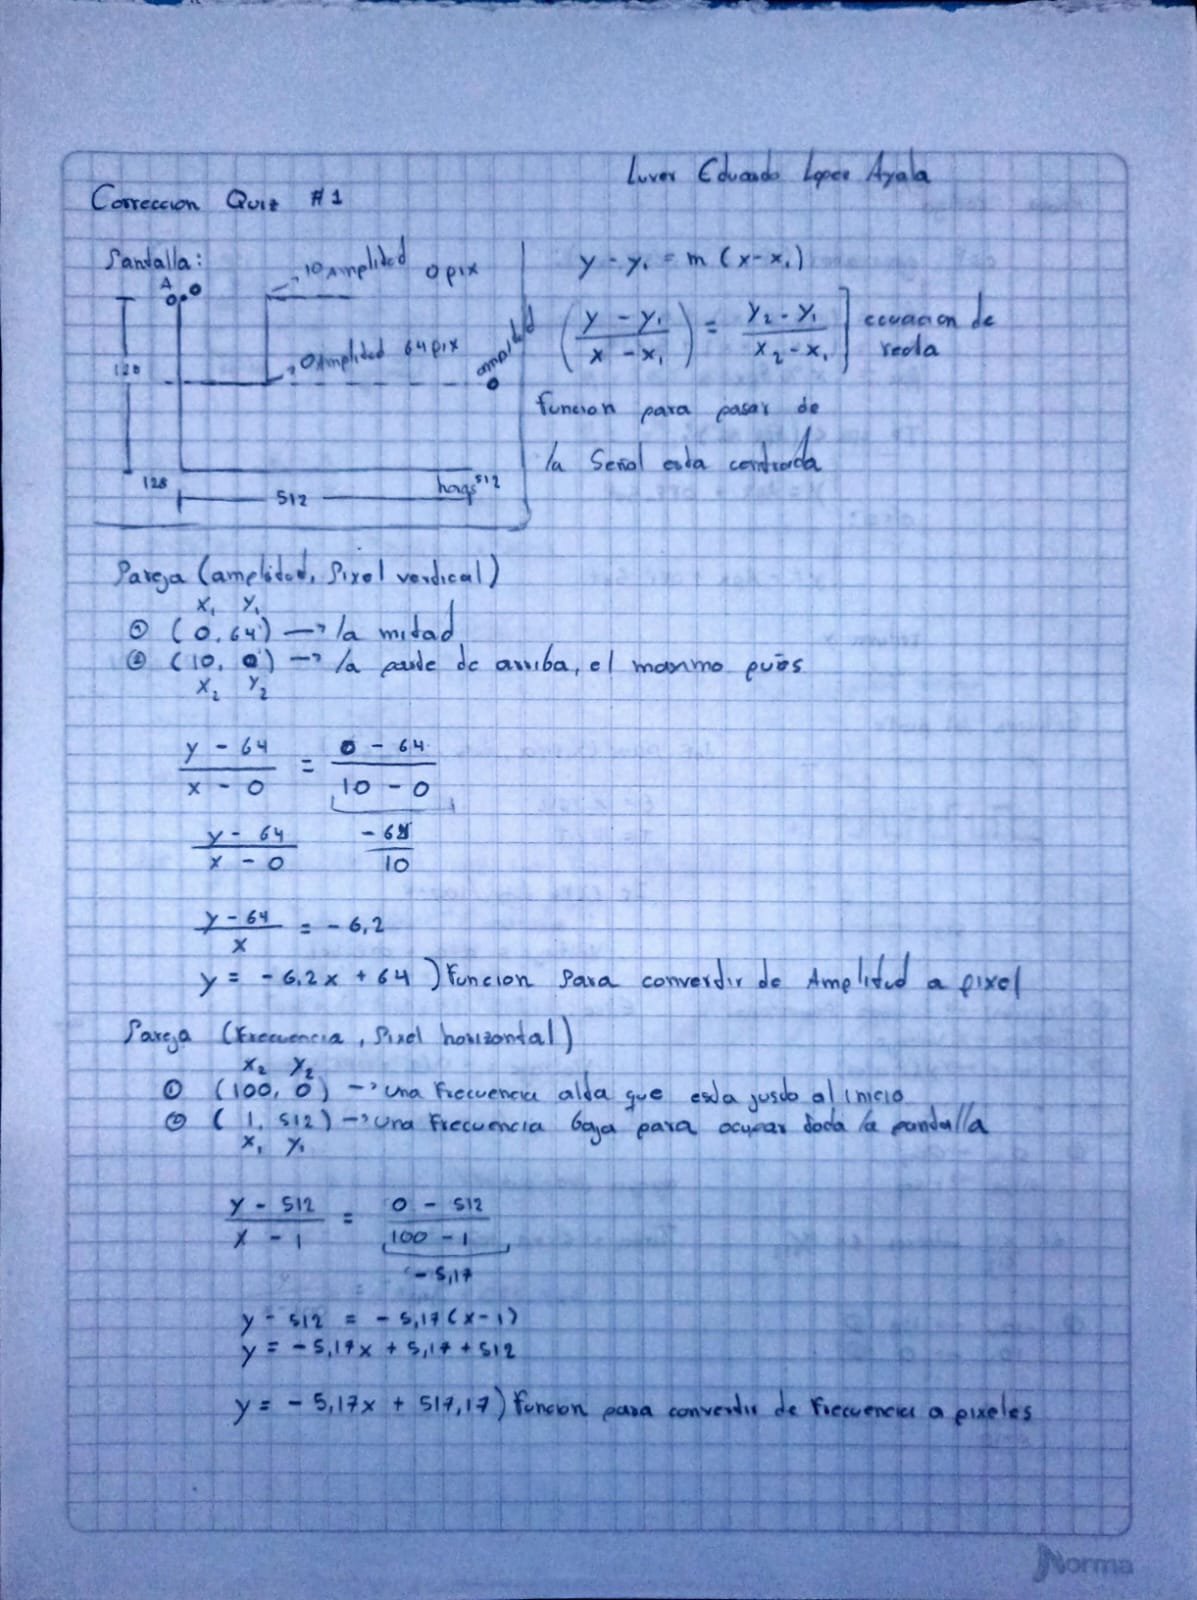 Luver Eduardo Lopez Ayala
Correccion Quiz #1
Pantalla:
A
0
10 Amplitud 0 pix
0 Amplitud 64 pix
amplitud
128
128
512
horas 512
y - y₁ = m (x - x₁)
(y - y₁ / x - x₁) = y₂ - y₁ / x₂ - x₁ ] ecuacion de recta
Funcion para pasar de
la Señal esta centrada
Pareja (amplitud, Pixel vertical)
x₁ y₁
① (0, 64) → la mitad
② (10, 0) → la parte de arriba, el maximo pues
x₂ y₂
y - 64 / x - 0 = 0 - 64 / 10 - 0
y - 64 / x - 0 -64 / 10
y - 64 / x = - 6,2
y = - 6,2x + 64 ) Funcion Para convertir de Amplitud a pixel
Pareja (Frecuencia, Pixel horizontal)
x₂ y₂
① (100, 0) → una Frecuencia alta que esta justo al inicio
② (1, 512) → una Frecuencia baja para ocupar toda la pantalla
x₁ y₁
y - 512 / x - 1 = 0 - 512 / 100 - 1
- 5,17
y - 512 = - 5,17 (x - 1)
y = - 5,17x + 5,17 + 512
y = - 5,17x + 517,17 ) Funcion para convertir de Frecuencia a pixeles
Norma